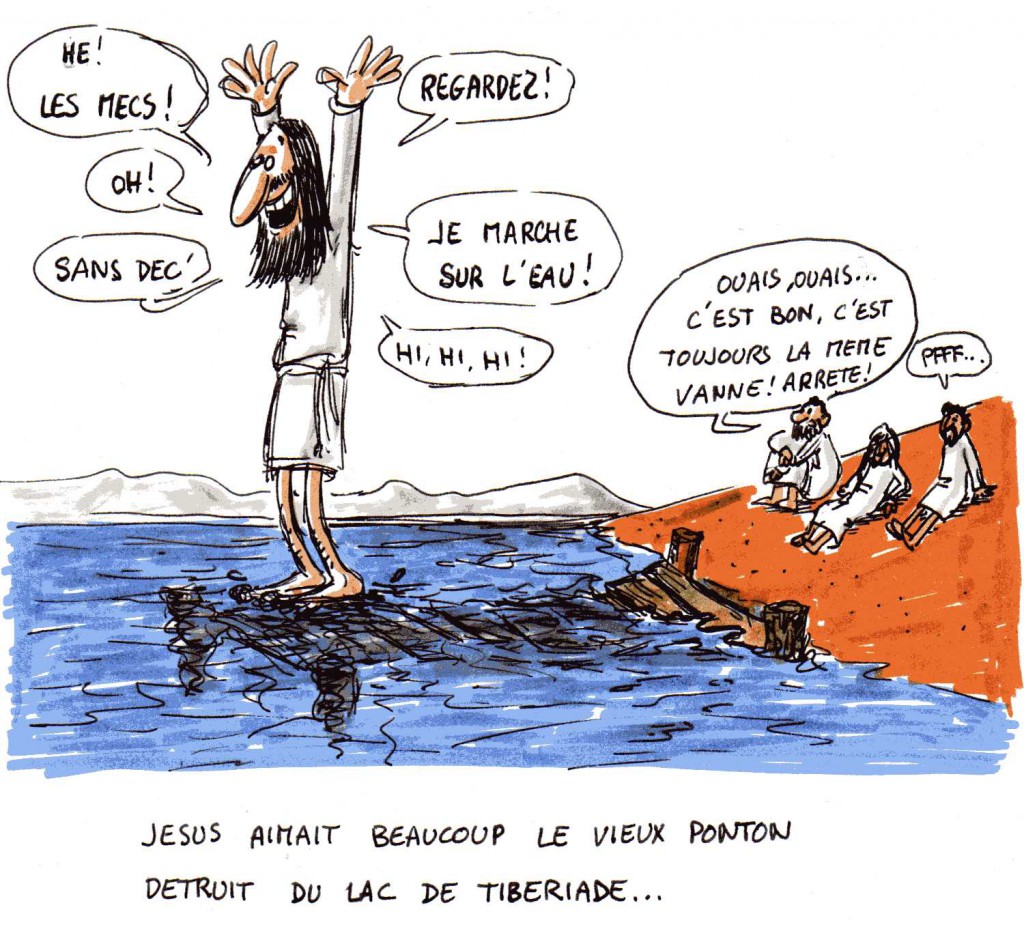 HE!
LES MECS!
REGARDEZ!
OH!
SANS DEC'
JE MARCHE
SUR L'EAU!
HI, HI, HI!
OUAIS, OUAIS...
C'EST BON, C'EST
TOUJOURS LA MEME
VANNE! ARRETE!
PFFF...
JESUS AIMAIT BEAUCOUP LE VIEUX PONTON
DETRUIT DU LAC DE TIBERIADE...